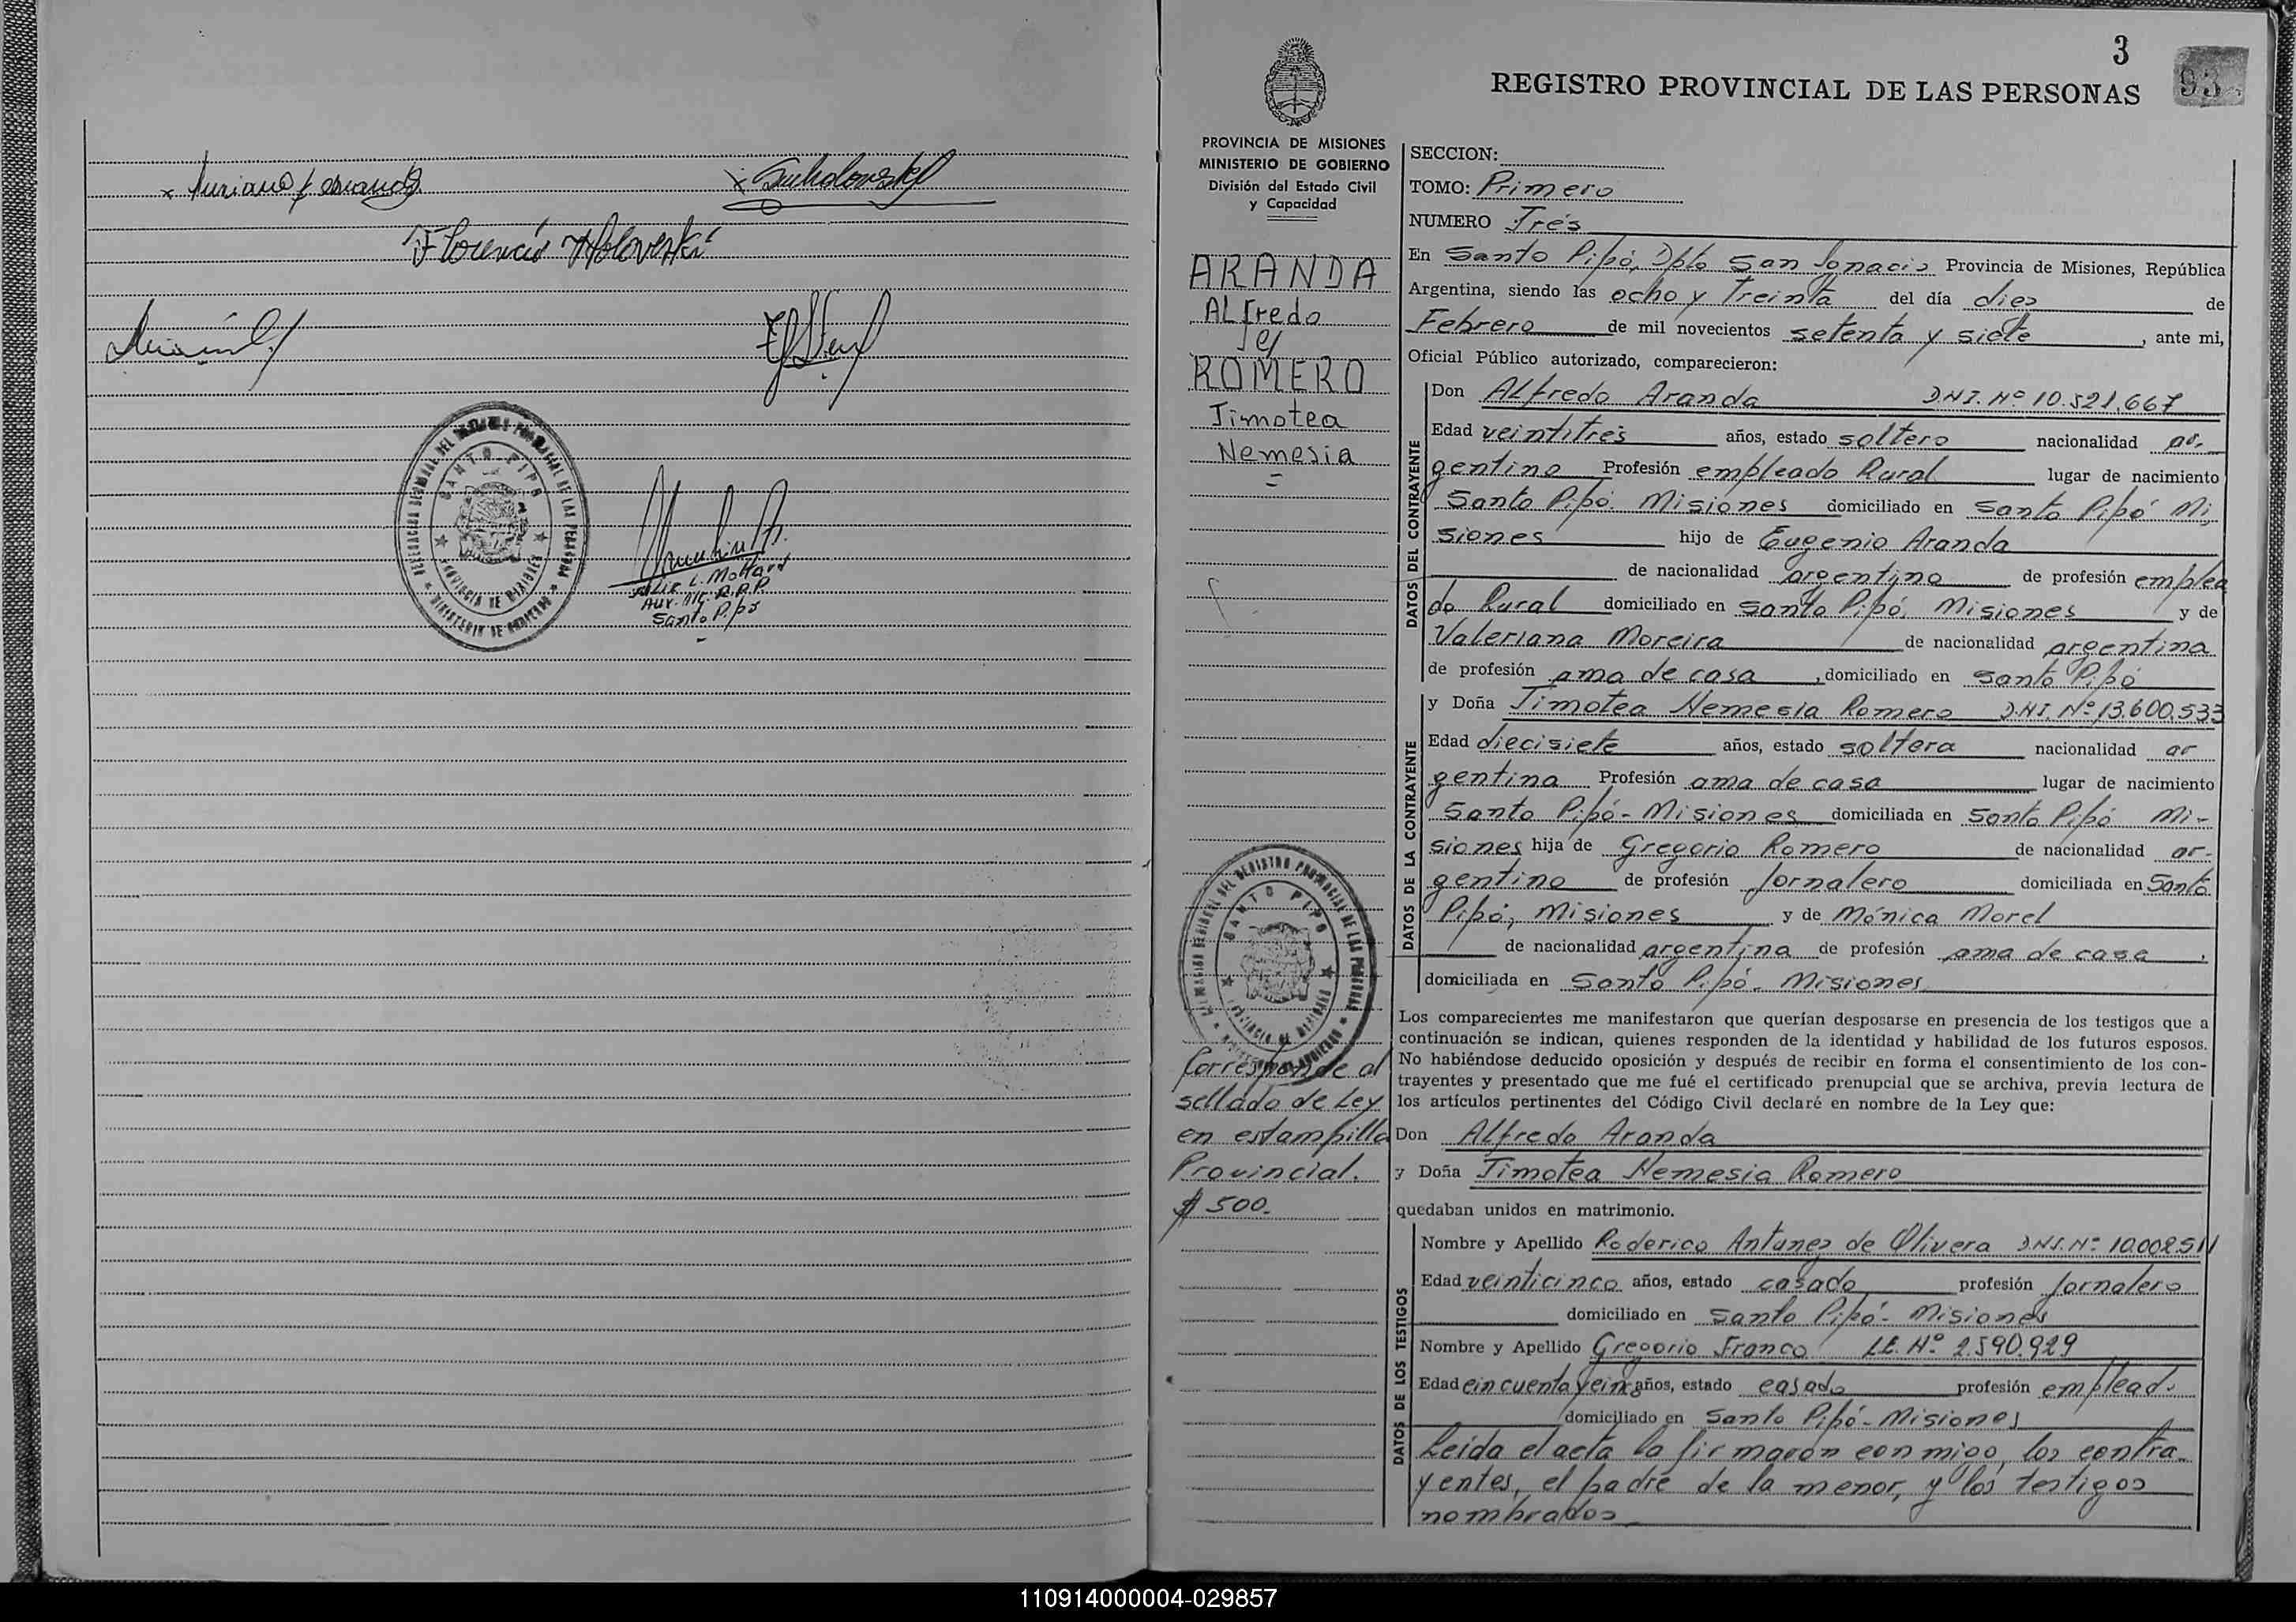 Florencio
Felix L. Mottard
Aux. Adc. R.P.P.
Santo Pipó
SANTO PIPO
PROVINCIA DE MISIONES
3
93
REGISTRO PROVINCIAL DE LAS PERSONAS
PROVINCIA DE MISIONES
MINISTERIO DE GOBIERNO
División del Estado Civil
y Capacidad
ARANDA
Alfredo
y
ROMERO
Timotea
Nemesia
=
SANTO PIPO
PROVINCIA DE MISIONES
Corresponde al
sellado de Ley
en estampilla
Provincial.
$ 500.-
SECCION:
TOMO: Primero
NUMERO Trés
En Santo Pipó, Dpto San Ignacio Provincia de Misiones, República
Argentina, siendo las ocho y Treinta del día diez de
Febrero de mil novecientos setenta y siete, ante mi,
Oficial Público autorizado, comparecieron:
DATOS DEL CONTRAYENTE
Don Alfredo Aranda D.N.I. Nº 10.521.667
Edad veintitrés años, estado soltero nacionalidad ar-
gentino Profesión empleado Rural lugar de nacimiento
Santo Pipó. Misiones domiciliado en Santo Pipó Mi-
siones hijo de Eugenio Aranda
de nacionalidad argentino de profesión emplea
do Rural domiciliado en Santo Pipó, Misiones y de
Valeriana Moreira de nacionalidad argentina
de profesión ama de casa, domiciliado en Santo Pipó
DATOS DE LA CONTRAYENTE
y Doña Timotea Nemesia Romero D.N.I. Nº 13.600.533
Edad diecisiete años, estado soltera nacionalidad ar
gentina Profesión ama de casa lugar de nacimiento
Santo Pipó - Misiones domiciliada en Santo Pipó Mi-
siones hija de Gregorio Romero de nacionalidad ar-
gentino de profesión Jornalero domiciliada en Santo
Pipó, Misiones y de Mónica Morel
de nacionalidad argentina de profesión ama de casa,
domiciliada en Santo Pipó. Misiones
Los comparecientes me manifestaron que querían desposarse en presencia de los testigos que a
continuación se indican, quienes responden de la identidad y habilidad de los futuros esposos.
No habiéndose deducido oposición y después de recibir en forma el consentimiento de los con-
trayentes y presentado que me fué el certificado prenupcial que se archiva, previa lectura de
los artículos pertinentes del Código Civil declaré en nombre de la Ley que:
Don Alfredo Aranda
y Doña Timotea Nemesia Romero
quedaban unidos en matrimonio.
DATOS DE LOS TESTIGOS
Nombre y Apellido Roderico Antunez de Olivera D.N.I. Nº 10.002.511
Edad veinticinco años, estado casado profesión Jornalero
domiciliado en Santo Pipó - Misiones
Nombre y Apellido Gregorio Franco L.E. Nº 2.590.929
Edad cincuenta y cinco años, estado casado profesión emplead.
domiciliado en Santo Pipó - Misiones
Leída el acta la firmaron conmigo, los contra-
yentes, el padre de la menor, y los testigos
nombrados
110914000004-029857